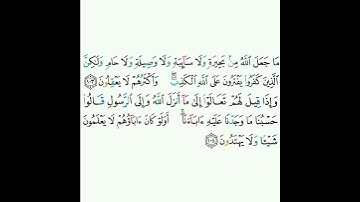 مَا جَعَلَ ٱللَّهُ مِنۢ بَحِيرَةٍ وَلَا سَآئِبَةٍ وَلَا وَصِيلَةٍ وَلَا حَامٍ وَلَٰكِنَّ
ٱلَّذِينَ كَفَرُوا۟ يَفْتَرُونَ عَلَى ٱللَّهِ ٱلْكَذِبَ ۖ وَأَكْثَرُهُمْ لَا يَعْقِلُونَ ١٠٣
وَإِذَا قِيلَ لَهُمْ تَعَالَوْا۟ إِلَىٰ مَآ أَنزَلَ ٱللَّهُ وَإِلَى ٱلرَّسُولِ قَالُوا۟
حَسْبُنَا مَا وَجَدْنَا عَلَيْهِ ءَابَآءَنَآ ۚ أَوَلَوْ كَانَ ءَابَآؤُهُمْ لَا يَعْلَمُونَ
شَيْـًٔا وَلَا يَهْتَدُونَ ١٠٤